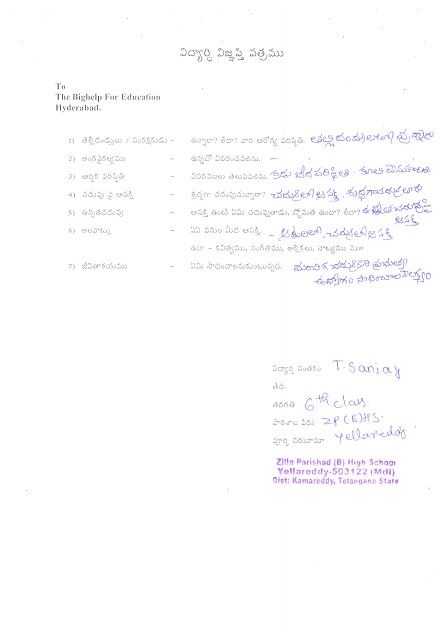 విద్యార్ధి విజ్ఞప్తి పత్రము
To
The Bighelp For Education
Hyderabad.
1) తల్లిదండ్రులు / సంరక్షకుడు - ఉన్నారా? లేరా? వారి ఆరోగ్య పరిస్థితి.
2) అంగవైకల్యము - ఉన్నచో వివరించవలెను. —
3) ఆర్థిక పరిస్థితి - వివరములు తెలుపవలెను. కడు బీద పరిస్థితి.
4) చదువు పై ఆసక్తి - శ్రద్ధగా చదువుచున్నారా? చదువులో ఆసక్తి.
5) ఉన్నతచదువు - ఆసక్తి ఉంటే ఏమి చదువుతాడు, స్థోమత ఉందా? లేదా?
ఆసక్తి
6) అలవాట్లు - ఏఏ పనుల మీద ఆసక్తి. - ఆటలలో, చదువులో ఆసక్తి
ఉదా - కవిత్వము, సంగీతము, అల్లికలు, నాట్యము మొ॥
7) జీవితాశయము - ఏమి సాధించాలనుకుంటున్నది.
ఉద్యోగం
విద్యార్థి సంతకం T. Sanjay
తేది.
తరగతి 6th class.
పాఠశాల పేరు ZP(B)HS.
పూర్తి చిరునామా yellareddy
Zilla Parishad (B) High School
Yellareddy-503122 (Mdl)
Dist: Kamareddy, Telangana State